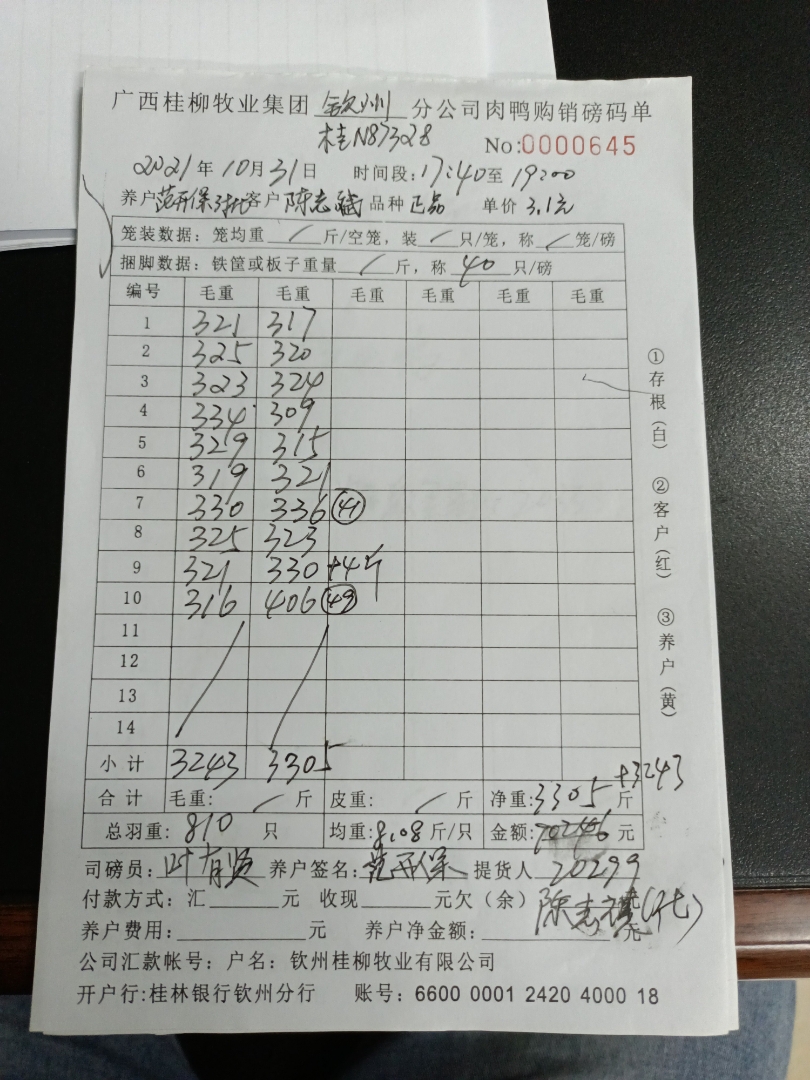 广西桂柳牧业集团 钦州 分公司肉鸭购销磅码单
桂N87328 No:0000645
2021年10月31日 时间段:17:40至19:00
养户范开保 客户陈志 品种正品 单价3.1元
笼装数据:笼均重 / 斤/空笼,装 / 只/笼,称 / 笼/磅
捆脚数据:铁筐或板子重量 / 斤,称 40 只/磅
编号 毛重 毛重 毛重 毛重 毛重 毛重
1 321 317
2 325 320
3 323 324
4 334 309
5 329 315
6 319 321
7 330 336 (41)
8 325 323
9 321 330 +4斤
10 316 406 (49)
11
12
13
14
小计 3243 3305
合计 毛重: / 斤 皮重: / 斤 净重:3305 +3243 斤
总羽重:810 只 均重:8.08斤/只 金额: 元
司磅员:叶有贤 养户签名:范开保 提货人 20299
付款方式:汇 元 收现 元欠(余) 元
陈志
养户费用: 元 养户净金额: 元
公司汇款帐号:户名:钦州桂柳牧业有限公司
开户行:桂林银行钦州分行 账号:6600 0001 2420 4000 18
①存根(白) ②客户(红) ③养户(黄)